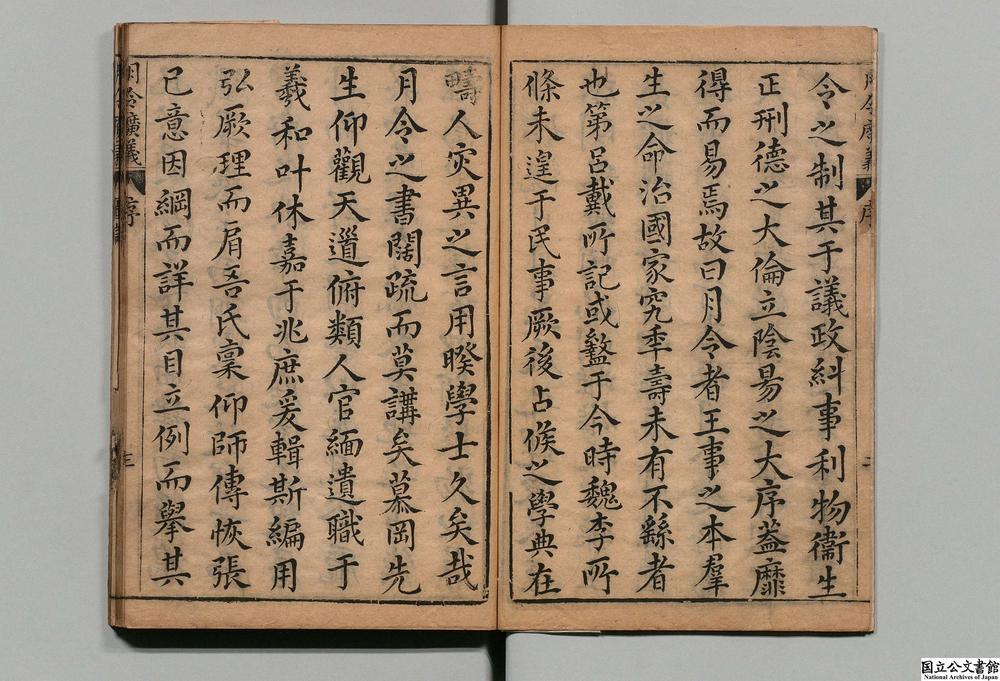 令之制其于議政糾事利物衞生
正刑德之大倫立陰昜之大序蓋靡
得而易焉故曰月令者王事之本羣
生之命治國家究年壽未有不繇者
也第呂戴所記或盭于今時魏李所
條未遑于民事厥後占候之學典在
疇人灾異之言用暌學士久矣哉
月令之書闊疏而莫講矣慕岡先
生仰觀天道俯類人官緬遺職于
羲和叶休嘉于兆庶爰輯斯編用
弘厥理而眉吾氏稟仰師傳恢張
已意因綱而詳其目立例而擧其
月令廣義
序
三
国立公文書館
National Archives of Japan